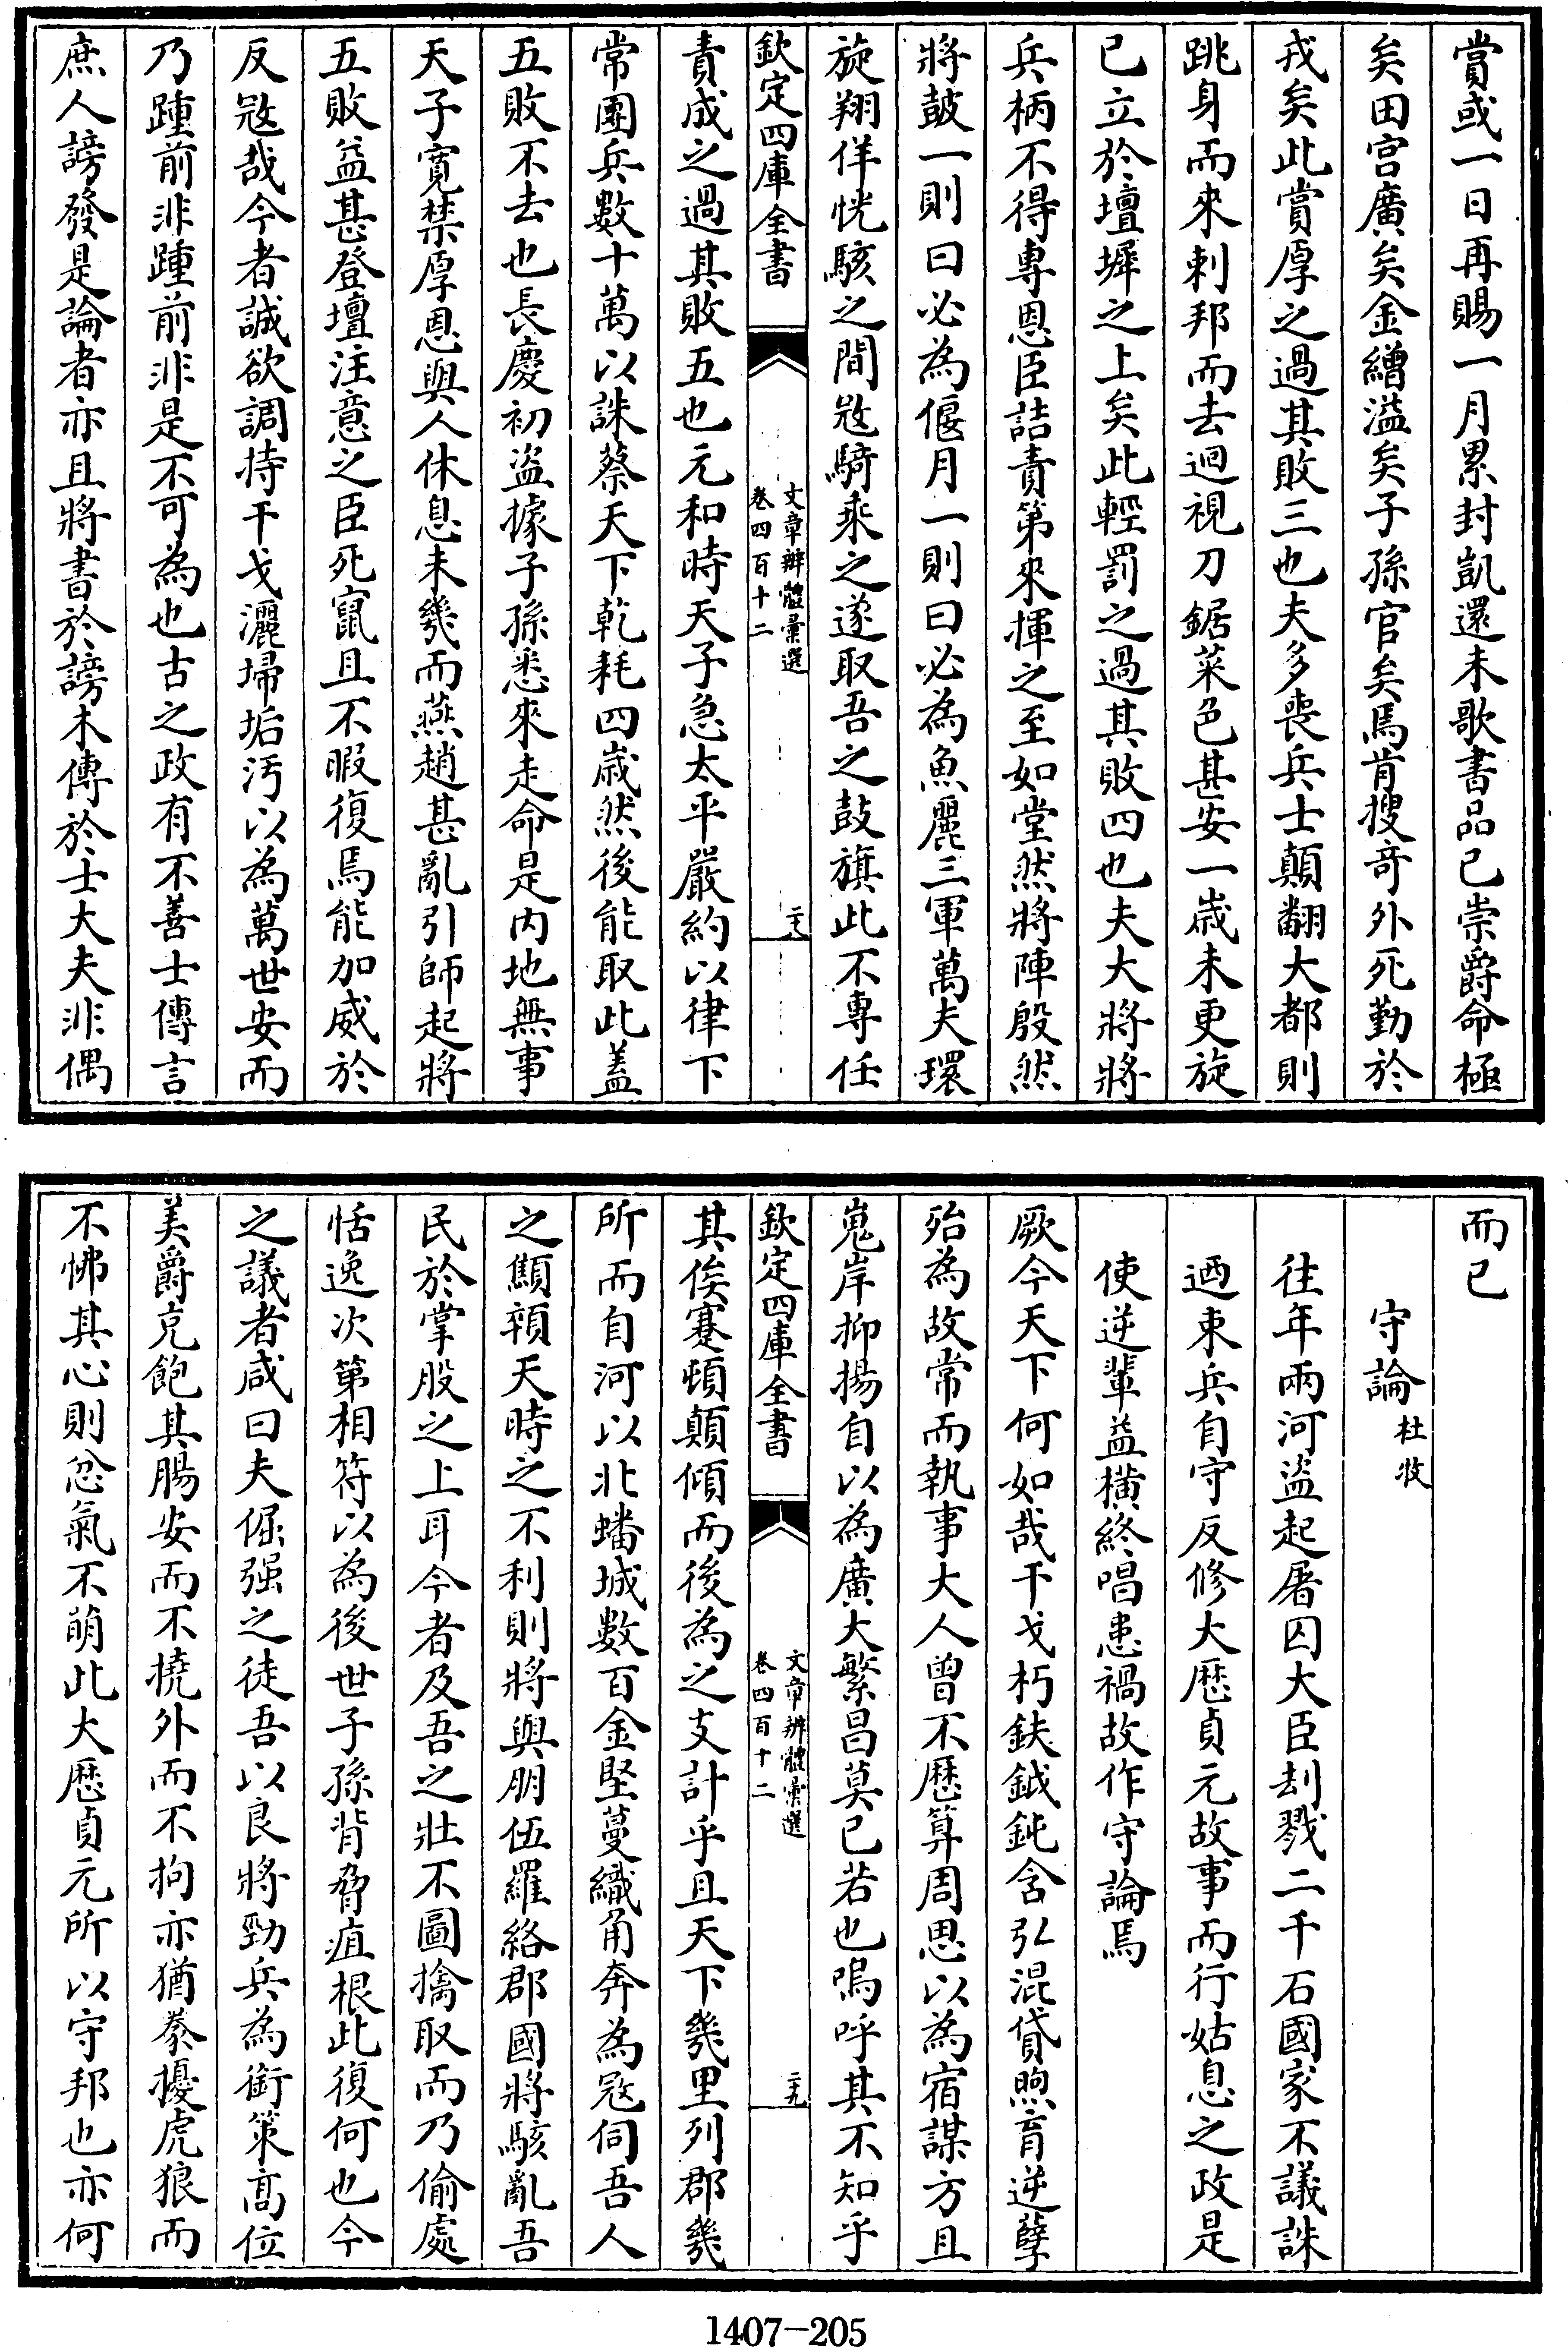 賞或一日再賜一月累封凱還未歌書品已崇爵命極
矣田宫廣矣金繒溢矣子孫官矣焉肯搜奇外死勤於
戎矣此賞厚之過其敗三也夫多喪兵士顛翻大都則
跳身而來刺邦而去迴視刀鋸菜色甚安一歲未更旋
已立於壇墀之上矣此輕罰之過其敗四也夫大將將
兵柄不得專恩臣詰責第來揮之至如堂然將陣殷然
將鼓一則曰必為偃月一則曰必為魚麗三軍萬夫環
旋翔佯恍駭之間冦騎乘之遂取吾之鼓旗此不專任
欽定四庫全書
文章辨體彙選
卷四百十二
二十八
責成之過其敗五也元和時天子急太平嚴約以律下
常團兵數十萬以誅蔡天下乾耗四歲然後能取此蓋
五敗不去也長慶初盗據子孫悉來走命是内地無事
天子寛禁厚恩與人休息未幾而燕趙甚亂引師起將
五敗益甚登壇注意之臣死竄且不暇復焉能加威於
反冦哉今者誠欲調持干戈灑埽垢汚以為萬世安而
乃踵前非踵前非是不可為也古之政有不善士傳言
庶人謗發是論者亦且將書於謗木傳於士大夫非偶
而已
守論杜牧
往年兩河盗起屠囚大臣刦戮二千石國家不議誅
迺束兵自守反修大歴貞元故事而行姑息之政是
使逆輩益横終唱患禍故作守論焉
厥今天下何如哉干戈朽鈇鉞鈍含弘混貸煦育逆孽
殆為故常而執事大人曾不歴算周思以為宿謀方且
嵬岸抑揚自以為廣大繁昌莫已若也嗚呼其不知乎
欽定四庫全書
文章辨體彙選
卷四百十二
二十九
其俟蹇頓顛傾而後為之支計乎且天下幾里列郡幾
所而自河以北蟠城數百金堅蔓織角奔為冦伺吾人
之顦顇天時之不利則將與朋伍羅絡郡國將駭亂吾
民於掌股之上耳今者及吾之壯不圖擒取而乃偷處
恬逸次第相符以為後世子孫背脅疽根此復何也今
之議者咸曰夫倔强之徒吾以良將勁兵為銜策高位
美爵充飽其腸安而不撓外而不拘亦猶豢擾虎狼而
不怫其心則忿氣不萌此大歴貞元所以守邦也亦何
1407-205